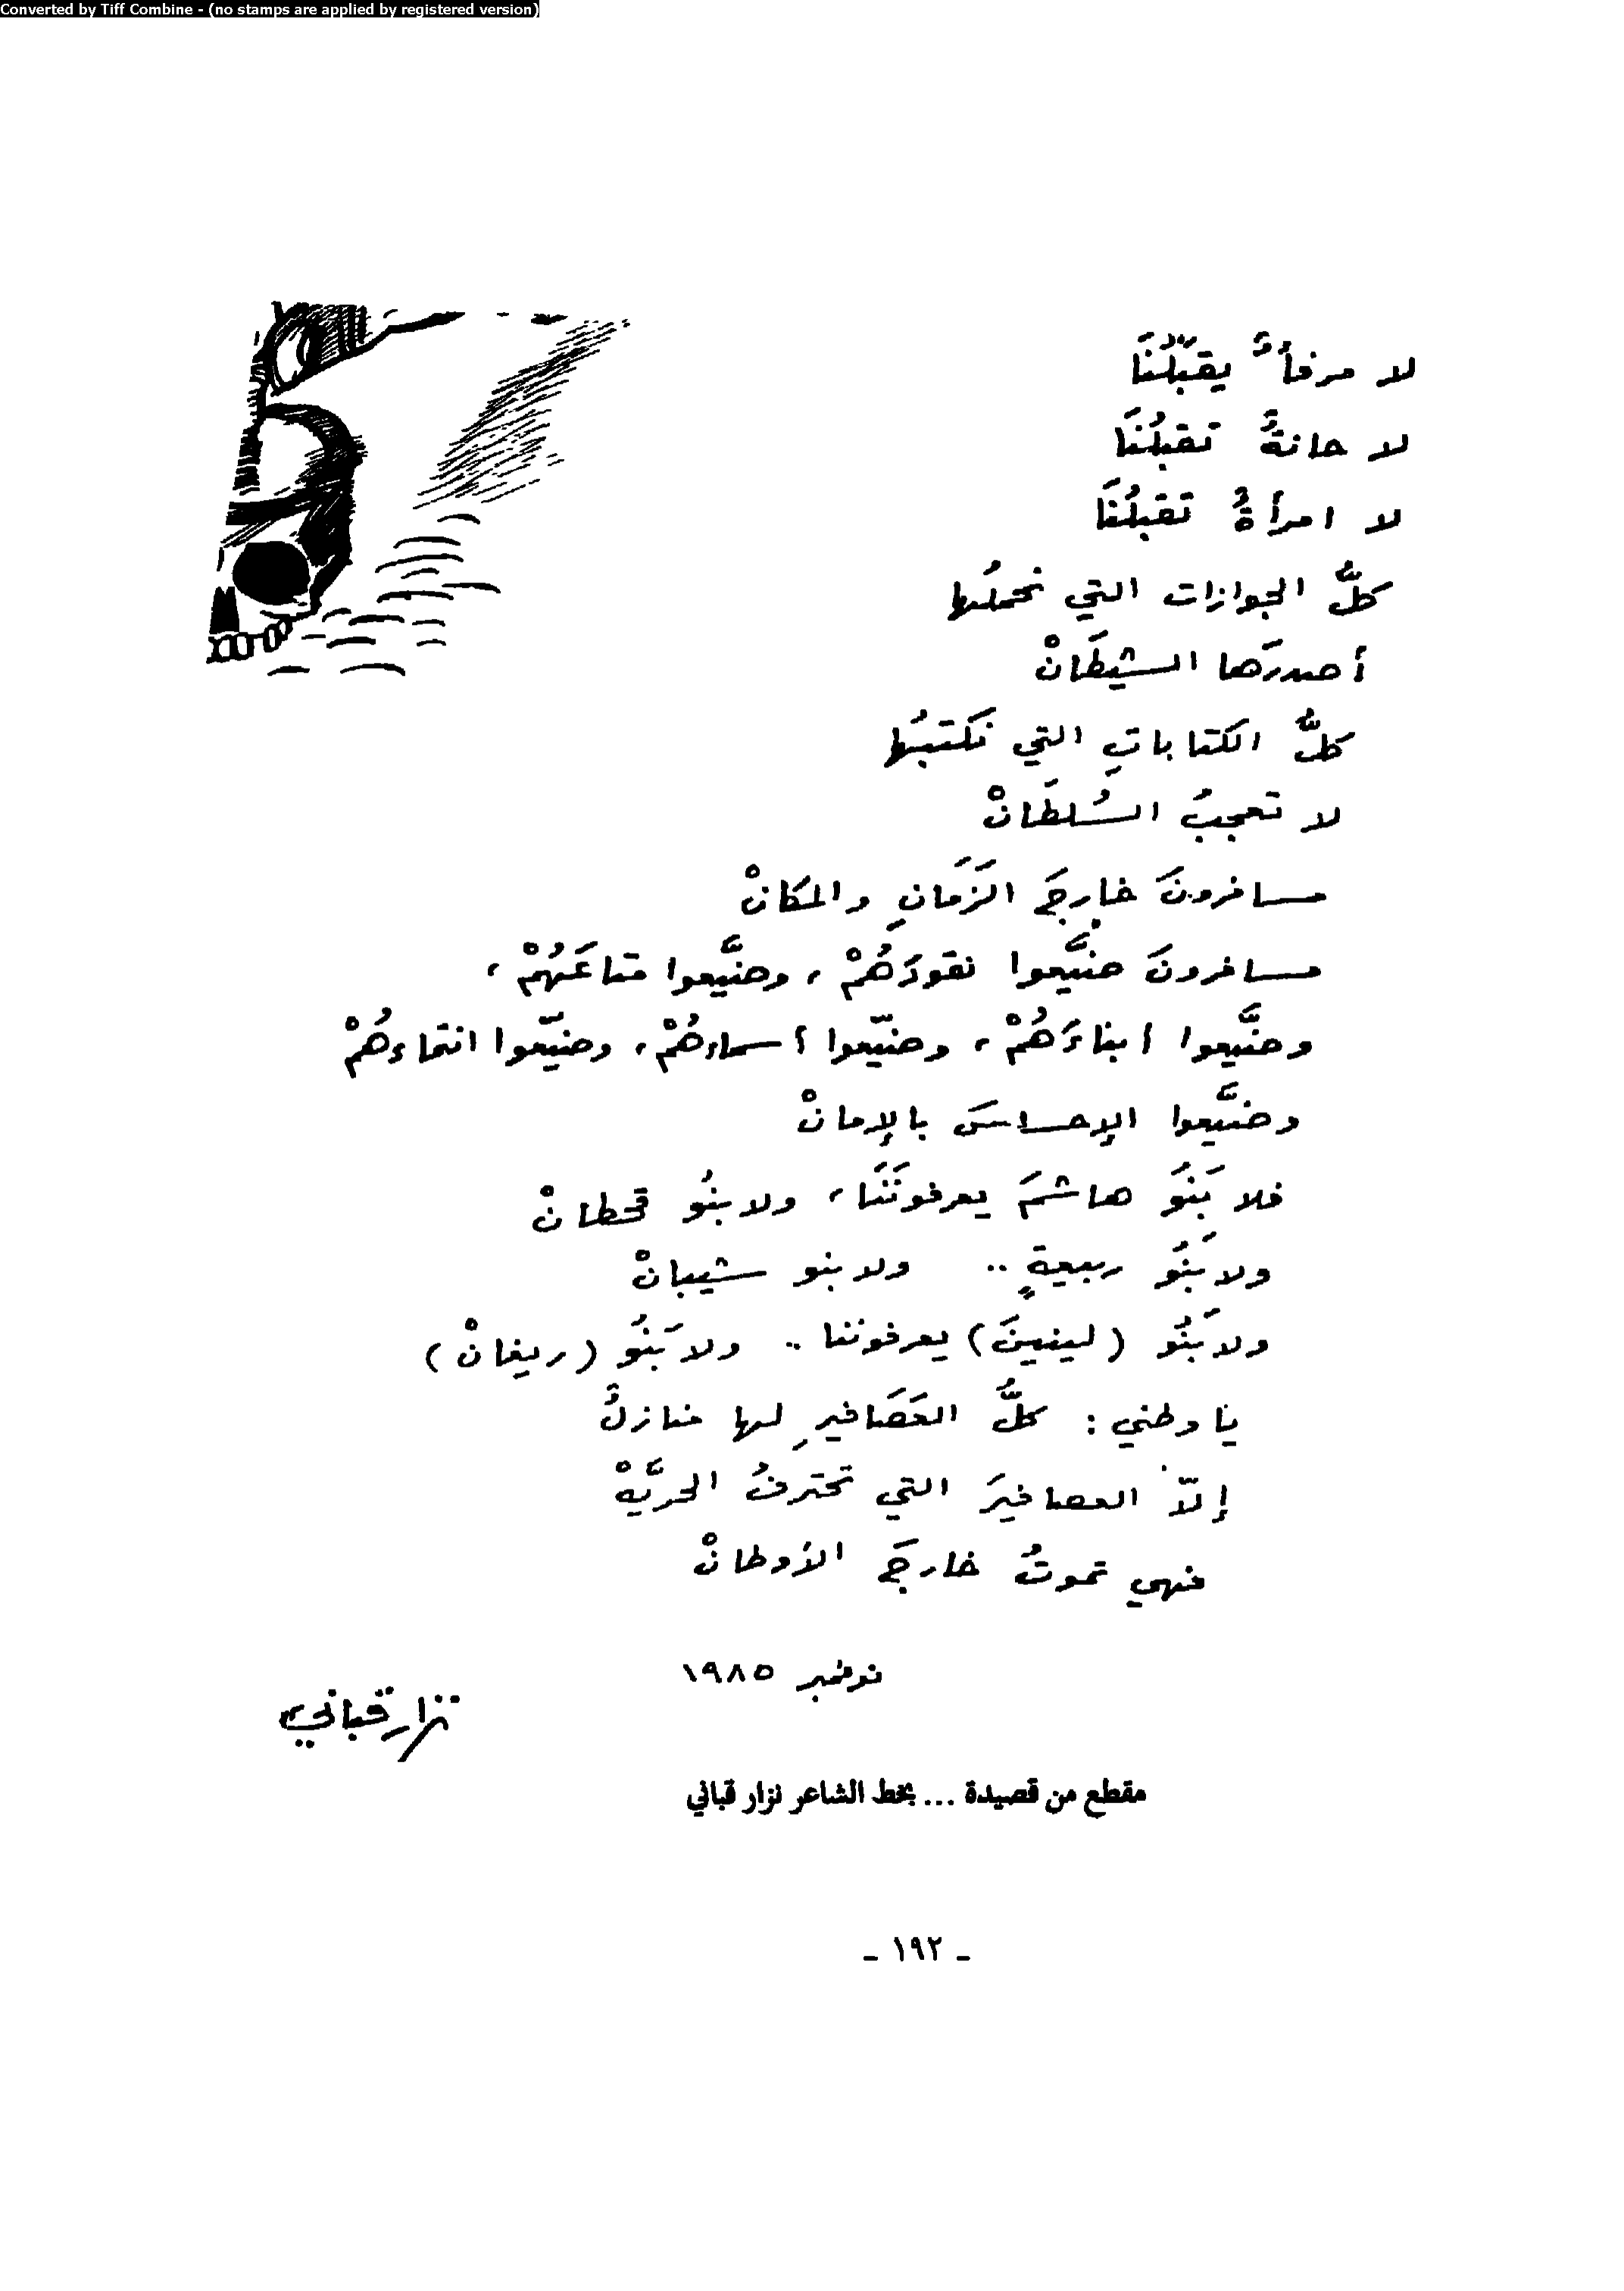 Converted by Tiff Combine - (no stamps are applied by registered version)
لا مرفأٌ يقبَلُنَا
لا حانةٌ تقبَلُنَا
لا امرأةٌ تقبَلُنَا
كلُّ الجوازات التي نحملُها
أصدرَها الشيطَانْ
كلُّ الكتاباتِ التي نكتبُها
لا تعجبُ السُلطَانْ
مسافرونَ خارجَ الزَمَانِ والمكانْ
مسافرونَ ضيَّعوا نقودَهُمْ ، وضيَّعوا متاعَهُمْ ،
وضيَّعوا أبناءَهُمْ ، وضيّعوا أسماءهُمْ ، وضيّعوا انتماءهُمْ
وضيَّعوا الإحساسَ بالإمانْ
فلا بَنُو هاشمَ يعرفونَنَا ، ولا بنُو قحطانْ
ولا بَنُو ربيعةٍ .. ولا بنو شيبانْ
ولا بَنُو (لينينَ) يعرفوننا .. ولا بَنُو (ريغانْ)
يا وطني : كلُّ العَصَافيرِ لها منازلٌ
إلاّ العصافيرَ التي تحترفُ الحريَّهْ
فهي تموتُ خارجَ الأوطانْ
نوفمبر ١٩٨٥
نزار قباني
مقطع من قصيدة ... بخط الشاعر نزار قباني
- ١٩٢ -